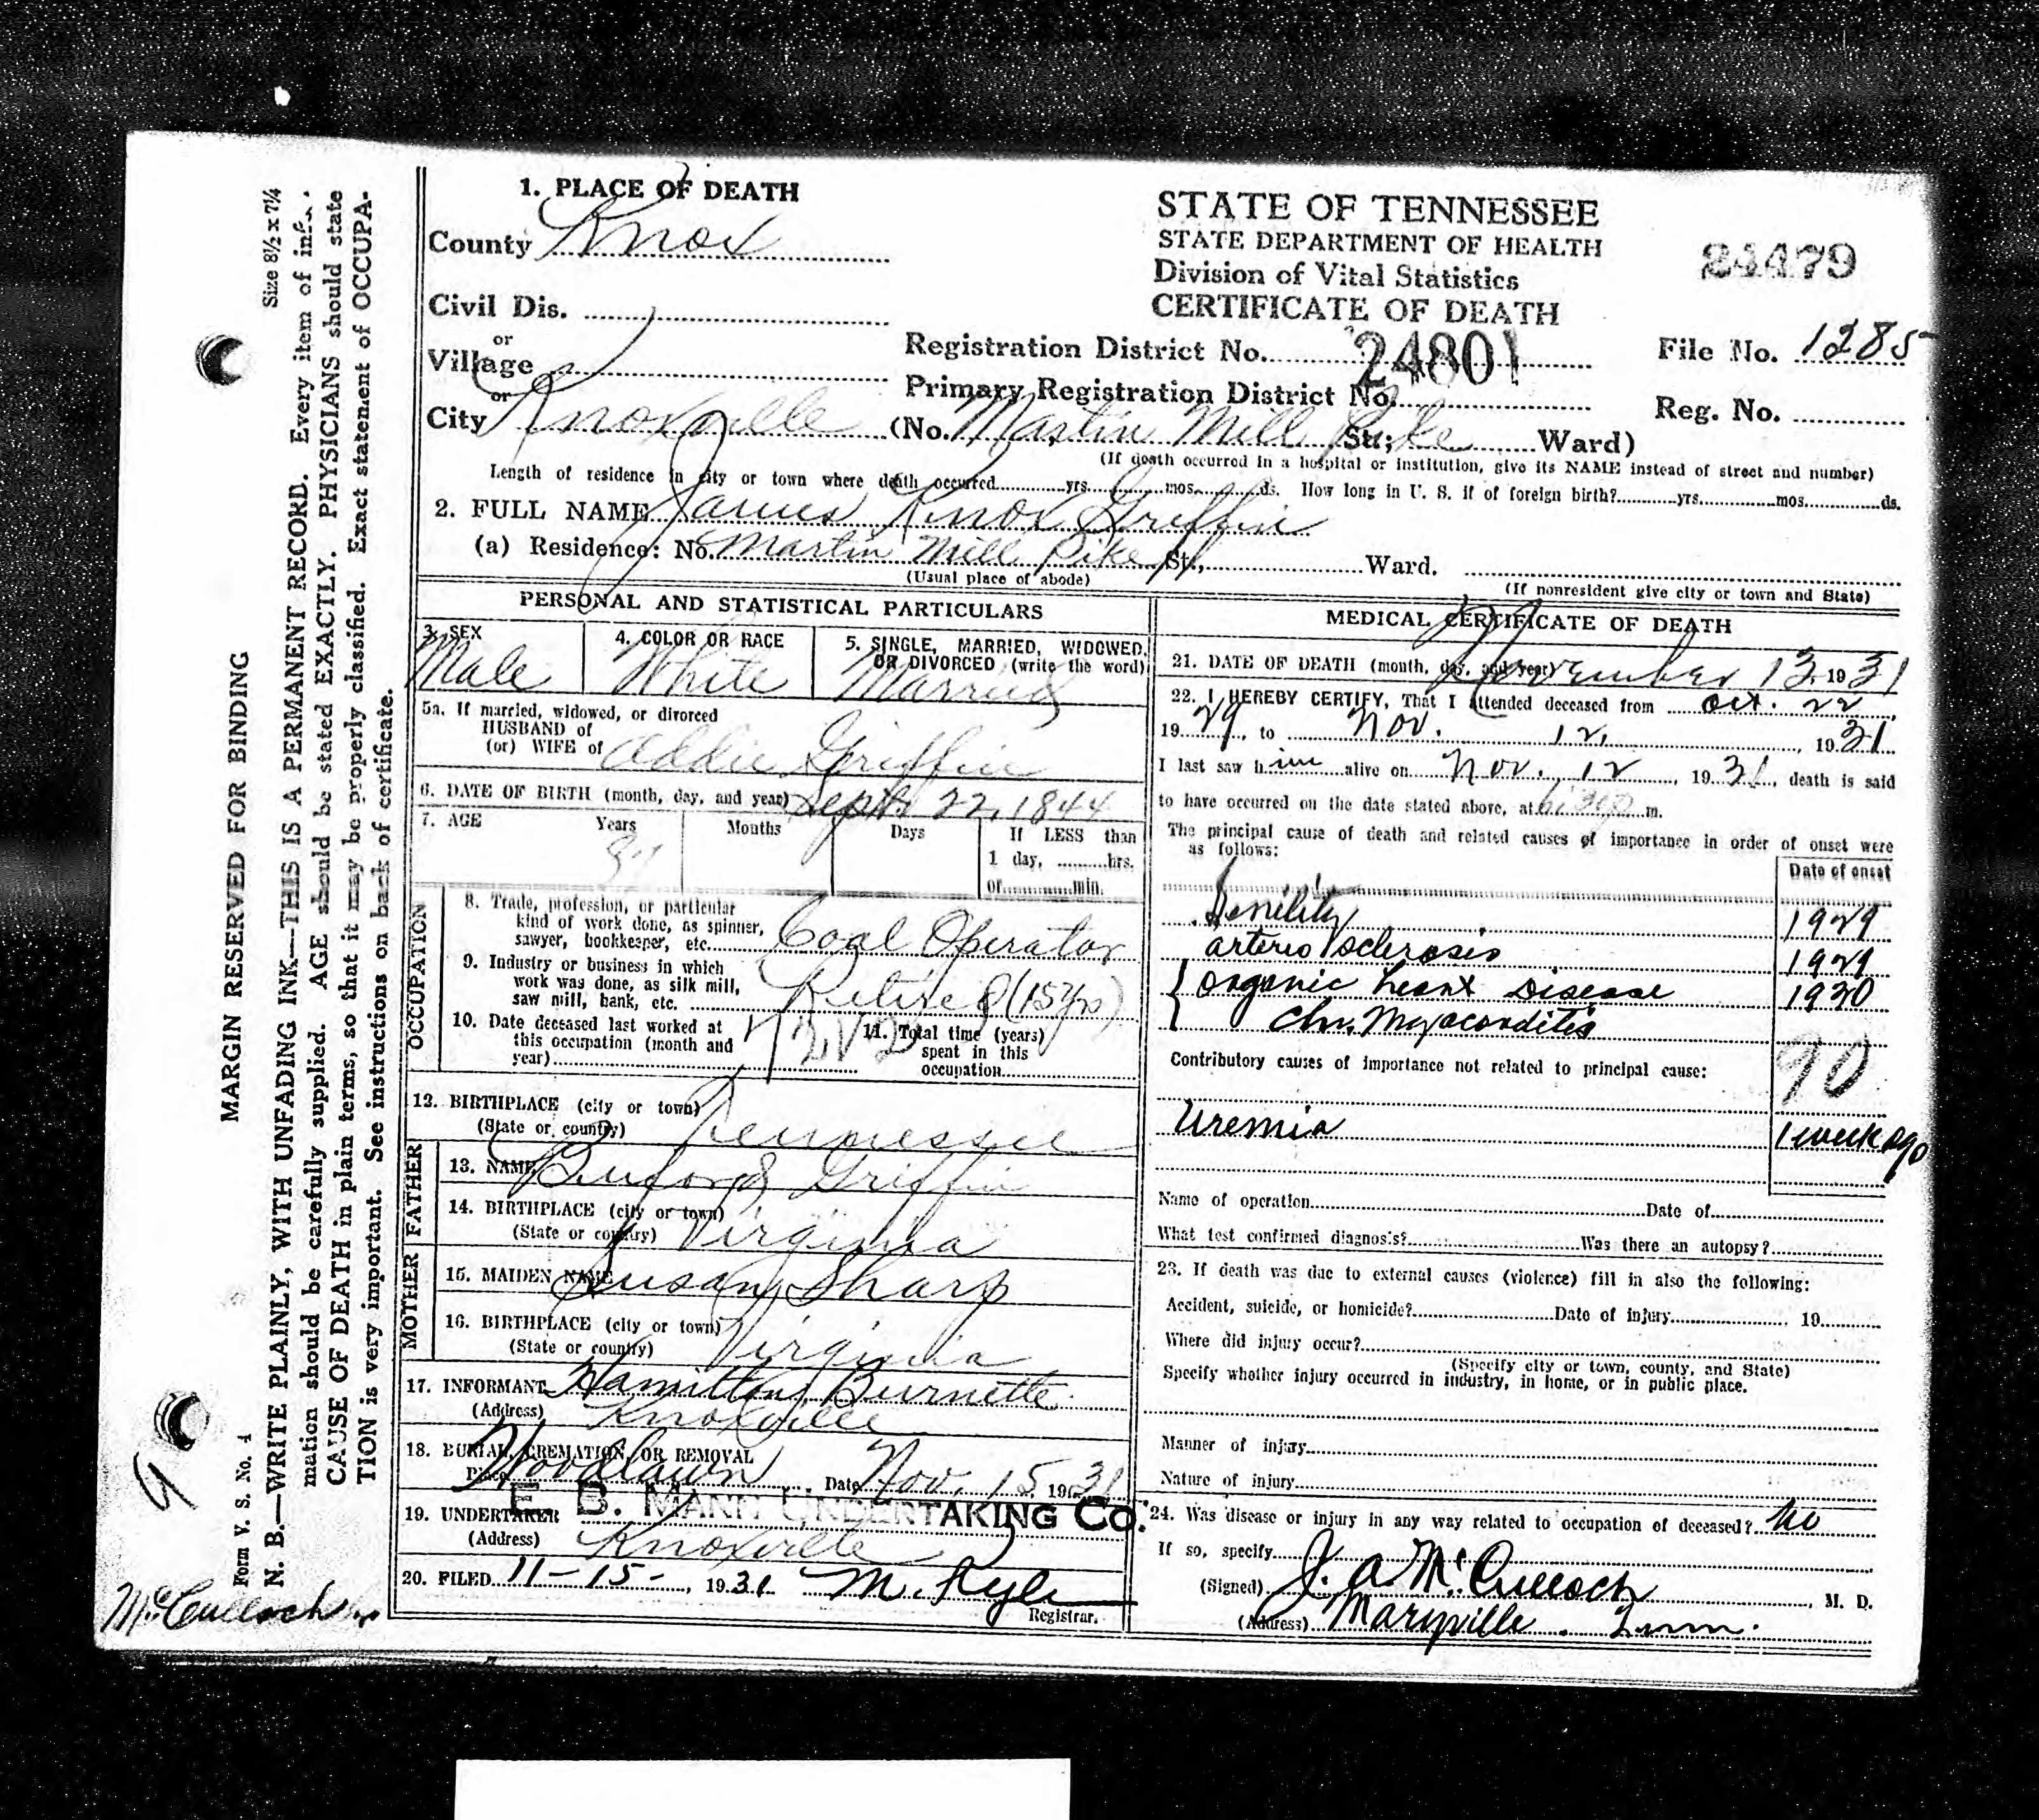 Size 8½ x 7¼
MARGIN RESERVED FOR BINDING
N. B.—WRITE PLAINLY, WITH UNFADING INK—THIS IS A PERMANENT RECORD. Every item of
mation should be carefully supplied. AGE should be stated EXACTLY. PHYSICIANS should state
CAUSE OF DEATH in plain terms, so that it may be properly classified. Exact statement of OCCUPA-
TION is very important. See instructions on back of certificate.
Form V. S. No. 4
McCulloch
1. PLACE OF DEATH
County Knox
Civil Dis.
or
Village
or
City Knoxville (No. Martin Mill Pike St.; Ward)
(If death occurred in a hospital or institution, give its NAME instead of street and number)
STATE OF TENNESSEE
STATE DEPARTMENT OF HEALTH
Division of Vital Statistics
CERTIFICATE OF DEATH
24479
Registration District No. 24801
File No. 1285
Primary Registration District No.
Reg. No.
Length of residence in city or town where death occurred yrs. mos. ds. How long in U. S. if of foreign birth? yrs. mos. ds.
2. FULL NAME James Knox Griffin
(a) Residence: No. Martin Mill Pike St., Ward.
(Usual place of abode)
(If nonresident give city or town and State)
PERSONAL AND STATISTICAL PARTICULARS
3. SEX
Male
4. COLOR OR RACE
White
5. SINGLE, MARRIED, WIDOWED, OR DIVORCED (write the word)
Married
5a. If married, widowed, or divorced
HUSBAND of
(or) WIFE of Addie Griffin
6. DATE OF BIRTH (month, day, and year) Sept 22, 1844
7. AGE Years Months Days If LESS than
87 1 day, hrs.
or min.
OCCUPATION
8. Trade, profession, or particular
kind of work done, as spinner,
sawyer, bookkeeper, etc. Coal Operator
9. Industry or business in which
work was done, as silk mill,
saw mill, bank, etc. Retired (15 yrs)
10. Date deceased last worked at
this occupation (month and
year)
11. Total time (years)
spent in this
occupation
12. BIRTHPLACE (city or town)
(State or country) Tennessee
FATHER
13. NAME Buford Griffin
14. BIRTHPLACE (city or town)
(State or country) Virginia
MOTHER
15. MAIDEN NAME Susan Sharp
16. BIRTHPLACE (city or town)
(State or country) Virginia
17. INFORMANT Hamilton Burnette
(Address) Knoxville
18. BURIAL, CREMATION, OR REMOVAL
Place Woodlawn Date Nov. 15 1931
19. UNDERTAKER E. B. MANN UNDERTAKING CO.
(Address) Knoxville
20. FILED 11-15-, 1931 M. Kyle
Registrar.
MEDICAL CERTIFICATE OF DEATH
21. DATE OF DEATH (month, day, and year) November 13, 1931
22. I HEREBY CERTIFY, That I attended deceased from Oct. 22
1929, to Nov. 12, 1931
I last saw him alive on Nov. 12, 1931, death is said
to have occurred on the date stated above, at m.
The principal cause of death and related causes of importance in order of onset were
as follows:
Date of onset
Senility 1929
arterio sclerosis 1929
organic heart disease 1930
chr. Myocarditis
90
Contributory causes of importance not related to principal cause:
Uremia 1 week ago
Name of operation Date of
What test confirmed diagnosis? Was there an autopsy?
23. If death was due to external causes (violence) fill in also the following:
Accident, suicide, or homicide? Date of injury 19
Where did injury occur?
(Specify city or town, county, and State)
Specify whether injury occurred in industry, in home, or in public place.
Manner of injury
Nature of injury
24. Was disease or injury in any way related to occupation of deceased? No
If so, specify
(Signed) J. A. McCulloch, M. D.
(Address) Maryville. Tenn.